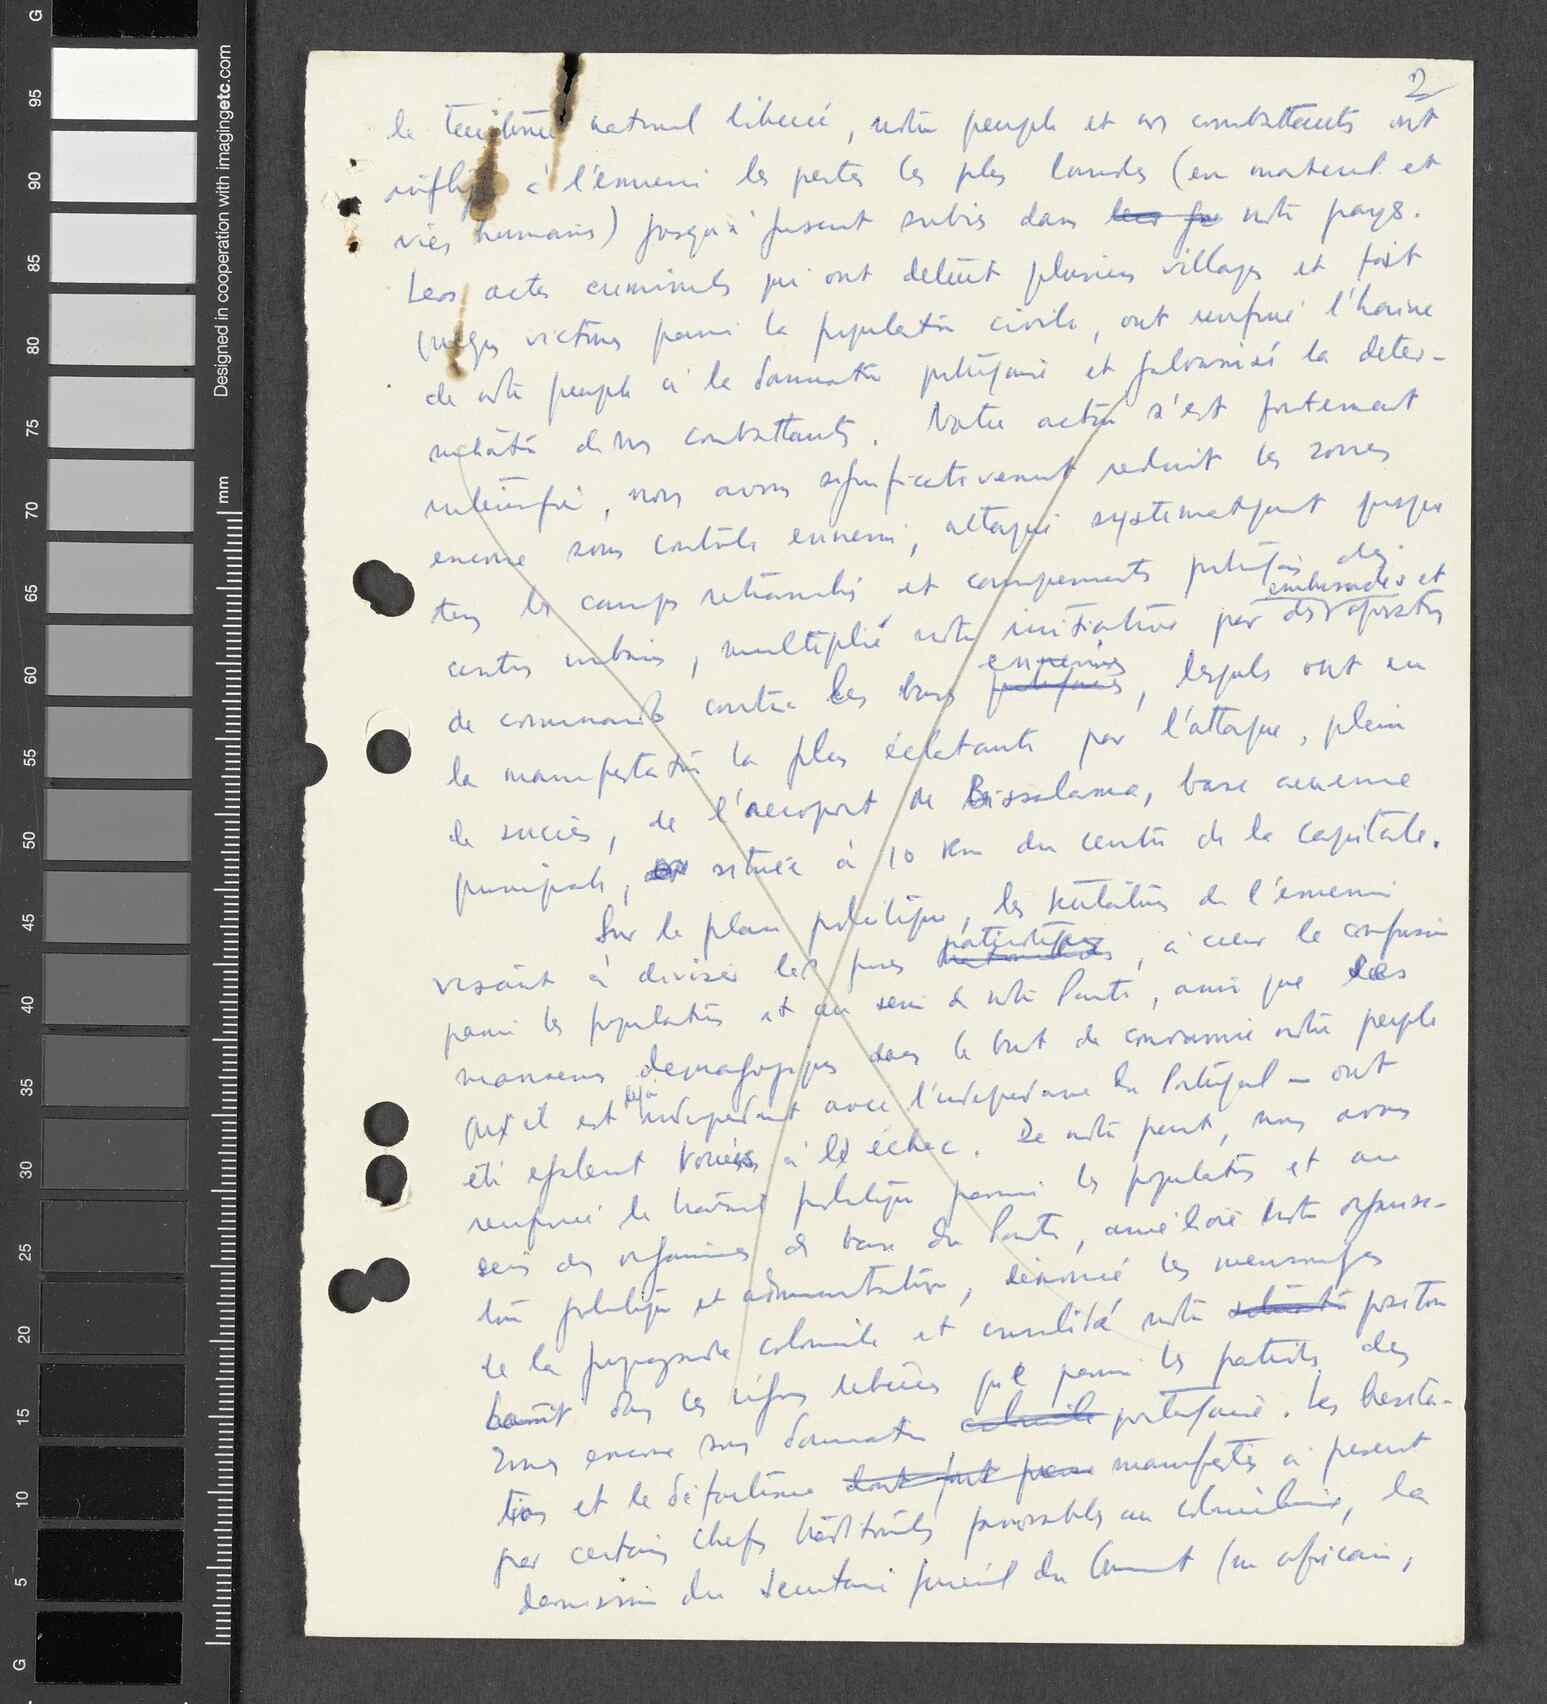 2
le territoire national libéré, notre peuple et nos combattants ont
infligé à l'ennemi les pertes les plus lourdes (en materiel et
vies humaines) jusqu'à présent subies dans notre pays.
Les actes criminels qui ont détruit plusieurs villages et fait
victimes parmi la population civile, ont renforcé l'haine
de notre peuple à la domination portugaise et galvanisé la déter-
mination de nos combattants. Notre action s'est fortement
intensifié, nous avons significativement reduit les zones
encore sous contrôle ennemi, attaqué systematiquement presque
tous les camps retranchés et campements portugais des
centres urbains, multiplié notre initiative par des embuscades et opérations
de commando contre les bases ennemies, lesquels ont eu
la manifestation la plus éclatante par l'attaque, plein
de succès, de l'aeroport de Bissalanca, base aerienne
principale, située à 10 km du centre de la capitale.
Sur le plan politique, les tentatives de l'ennemi
visant à diviser les forces patriotiques, à créer la confusion
parmi les populations et au sein de notre Parti, ainsi que les
manœuvres demagogiques dans le but de convaincre notre peuple
qu'il est déjà independant avec l'independance du Portugal — ont
été également vouées à l'échec. De notre part, nous avons
renforcé le travail politique parmi les populations et au
sein des organismes de base du Parti, amélioré notre organisa-
tion politique et administrative, dénoncé les mensonges
de la propagande coloniale et consolidé notre position
tant dans les régions libérées que parmi les patriotes des
zones encore sous domination portugaise. Les hesita-
tions et le défaitisme manifestés à present
par certains chefs traditionnels favorables au colonialisme, la
demission du Secrétaire général du Gouvernement (un africain,
Designed in cooperation with imagingetc.com
mm
G
95
90
85
80
75
70
65
60
55
50
45
40
35
30
25
20
15
10
5
G